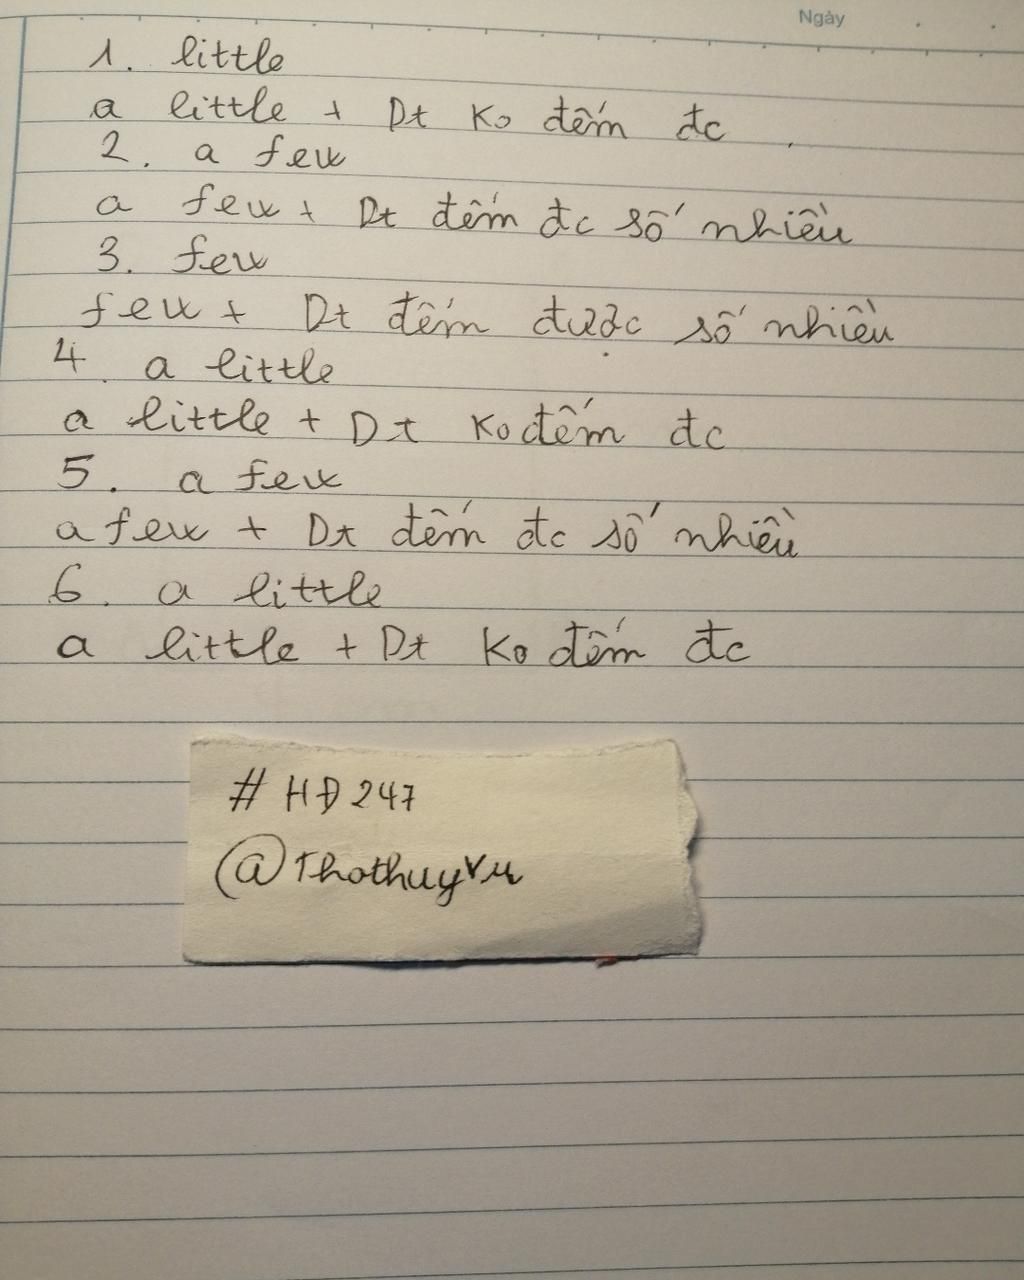 Ngày
1. little
a little + Dt Ko đếm đc
2. a few
a few + Dt đếm đc số nhiều
3. few
few + Dt đếm được số nhiều
4. a little
a little + Dt Ko đếm đc
5. a few
a few + Dt đếm đc số nhiều
6. a little
a little + Dt Ko đếm đc
# HĐ 247
@Thothuyvu